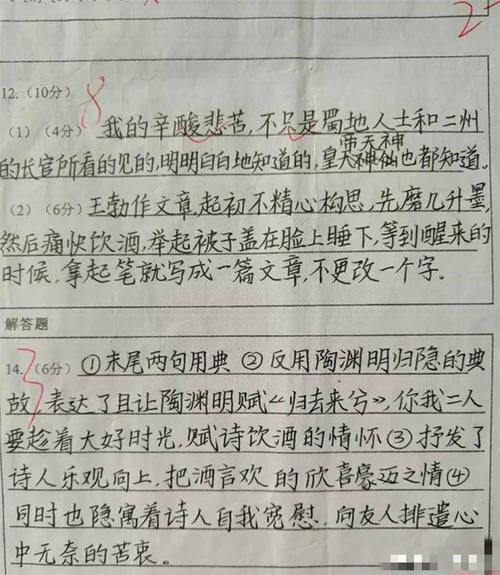 2
12.(10分) 8
(1)(4分) 我的辛酸悲苦,不只是蜀地人士和二州
的长官所看的见的,明明白白地知道的,皇天神仙也都知道。
帝天神
(2)(6分)王勃作文章,起初不精心构思,先磨几升墨,
然后痛快饮酒,举起被子盖在脸上睡下,等到醒来的
时候,拿起笔就写成一篇文章,不更改一个字。
解答题
14.(6分) 3 ①末尾两句用典 ②反用陶渊明归隐的典
故 表达了且让陶渊明赋《归去来兮》,你我二人
要趁着大好时光,赋诗饮酒的情怀③抒发了
诗人乐观向上,把酒言欢的欣喜豪迈之情④
同时也隐寓着诗人自我宽慰,向友人排遣心
中无奈的苦衷。